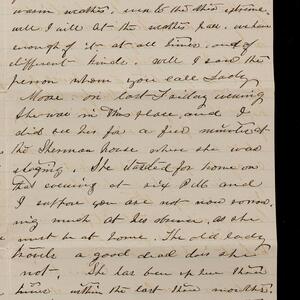 warm weather, was to the this extreme
well I will let the weather pass, we have
enough of it at all times, and of
different kinds. Well I saw the
person whom you call Lady
Moore on last Friday evening
She was in this place, and I
did see her for a few minutes at
the Sherman house where she was
staying. She started for home on
that evening at six P.M. and
I suppose you are not now sorrow
ing much at her absence, as she
must be at home. The old lady
travels a good deal does she
not. She has been up here three
times within the last three months.